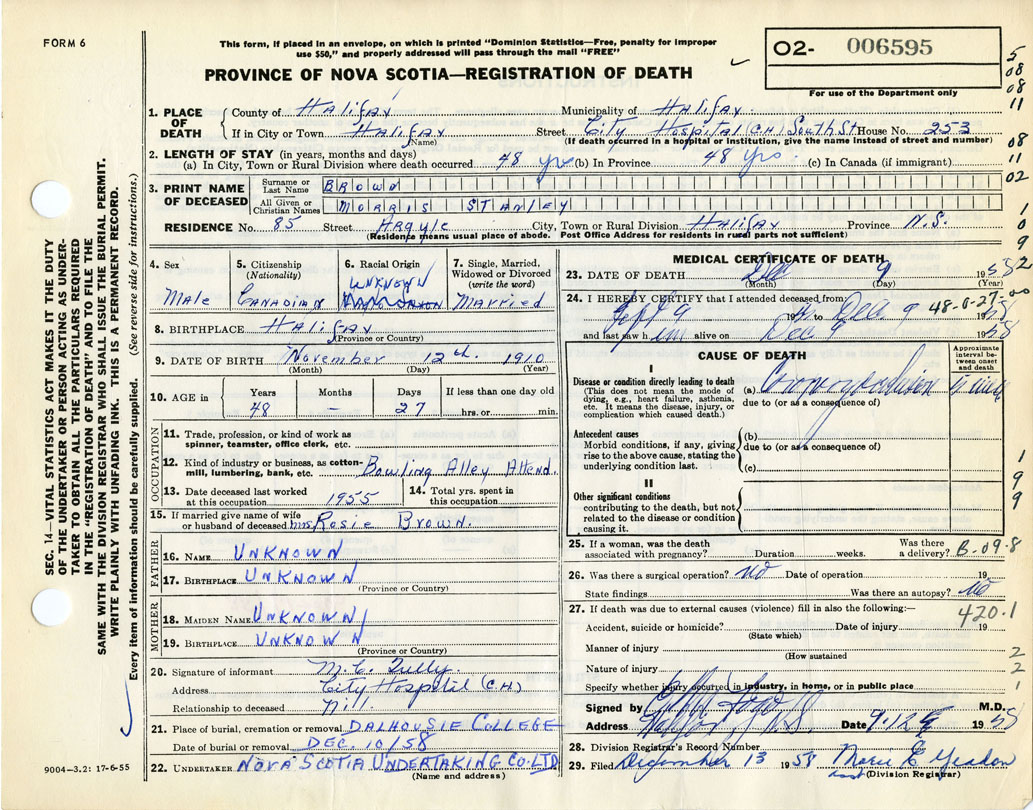 FORM 6
This form, if placed in an envelope, on which is printed "Dominion Statistics—Free, penalty for improper
use $50," and properly addressed will pass through the mail "FREE"
PROVINCE OF NOVA SCOTIA—REGISTRATION OF DEATH
02- 006595
For use of the Department only
1. PLACE OF DEATH
County of Halifax Municipality of Halifax
If in City or Town Halifax Street City Hospital (C.H.) South St House No. 253
(Name) (If death occurred in a hospital or institution, give the name instead of street and number)
2. LENGTH OF STAY (in years, months and days)
(a) In City, Town or Rural Division where death occurred 48 yrs (b) In Province 48 yrs. (c) In Canada (if immigrant)
3. PRINT NAME OF DECEASED
Surname or Last Name BROWN
All Given or Christian Names MORRIS STANLEY
RESIDENCE No. 85 Street Argyle City, Town or Rural Division Halifax Province N.S.
(Residence means usual place of abode. Post Office Address for residents in rural parts not sufficient)
4. Sex
Male
5. Citizenship
(Nationality)
Canadian
6. Racial Origin
UNKNOWN
7. Single, Married,
Widowed or Divorced
(write the word)
Married
8. BIRTHPLACE Halifax
(Province or Country)
9. DATE OF BIRTH November 12th. 1910
(Month) (Day) (Year)
10. AGE in
Years 48
Months —
Days 27
If less than one day old
hrs. or min.
OCCUPATION
11. Trade, profession, or kind of work as
spinner, teamster, office clerk, etc.
12. Kind of industry or business, as cotton-
mill, lumbering, bank, etc. Bowling Alley Attend.
13. Date deceased last worked
at this occupation 1955
14. Total yrs. spent in
this occupation
15. If married give name of wife
or husband of deceased Mrs Rosie Brown.
FATHER
16. NAME UNKNOWN
17. BIRTHPLACE UNKNOWN
(Province or Country)
MOTHER
18. MAIDEN NAME UNKNOWN
19. BIRTHPLACE UNKNOWN
(Province or Country)
20. Signature of informant M.C. Tully.
Address City Hospital (C.H.)
Relationship to deceased Nill.
21. Place of burial, cremation or removal DALHOUSIE COLLEGE
Date of burial or removal DEC. 10/58
22. UNDERTAKER NOVA SCOTIA UNDERTAKING CO. LTD
(Name and address)
MEDICAL CERTIFICATE OF DEATH
23. DATE OF DEATH Dec 9 1958
(Month) (Day) (Year)
24. I HEREBY CERTIFY that I attended deceased from
Sept 9 19 to Dec 9 1958
48-0-27-00
and last saw h im alive on Dec 9 1958
CAUSE OF DEATH
Approximate
interval be-
tween onset
and death
I
Disease or condition directly leading to death
(This does not mean the mode of
dying, e.g., heart failure, asthenia,
etc. It means the disease, injury, or
complication which caused death.)
(a) Coronary occlusion
due to (or as a consequence of)
Antecedent causes
Morbid conditions, if any, giving
rise to the above cause, stating the
underlying condition last.
(b)
due to (or as a consequence of)
(c)
II
Other significant conditions
contributing to the death, but not
related to the disease or condition
causing it.
25. If a woman, was the death
associated with pregnancy? Duration weeks.
Was there
a delivery? B-09-8
26. Was there a surgical operation? No Date of operation 19
State findings Was there an autopsy? No
27. If death was due to external causes (violence) fill in also the following:—
420.1
Accident, suicide or homicide? Date of injury 19
(State which)
Manner of injury
(How sustained
Nature of injury
Specify whether injury occurred in industry, in home, or in public place
Signed by M.D.
Address Halifax, N.S. Date 9.12 1958
28. Division Registrar's Record Number
29. Filed December 13 1958 Marie E Yeadon
(Division Registrar)
SEC. 14—VITAL STATISTICS ACT MAKES IT THE DUTY
OF THE UNDERTAKER OR PERSON ACTING AS UNDER-
TAKER TO OBTAIN ALL THE PARTICULARS REQUIRED
IN THE "REGISTRATION OF DEATH" AND TO FILE THE
SAME WITH THE DIVISION REGISTRAR WHO SHALL ISSUE THE BURIAL PERMIT.
WRITE PLAINLY WITH UNFADING INK. THIS IS A PERMANENT RECORD.
Every item of information should be carefully supplied. (See reverse side for instructions.)
9004—3.2: 17-6-55
5
08
08
11
08
11
02
1
0
9
2
1
9
9
2
2
1